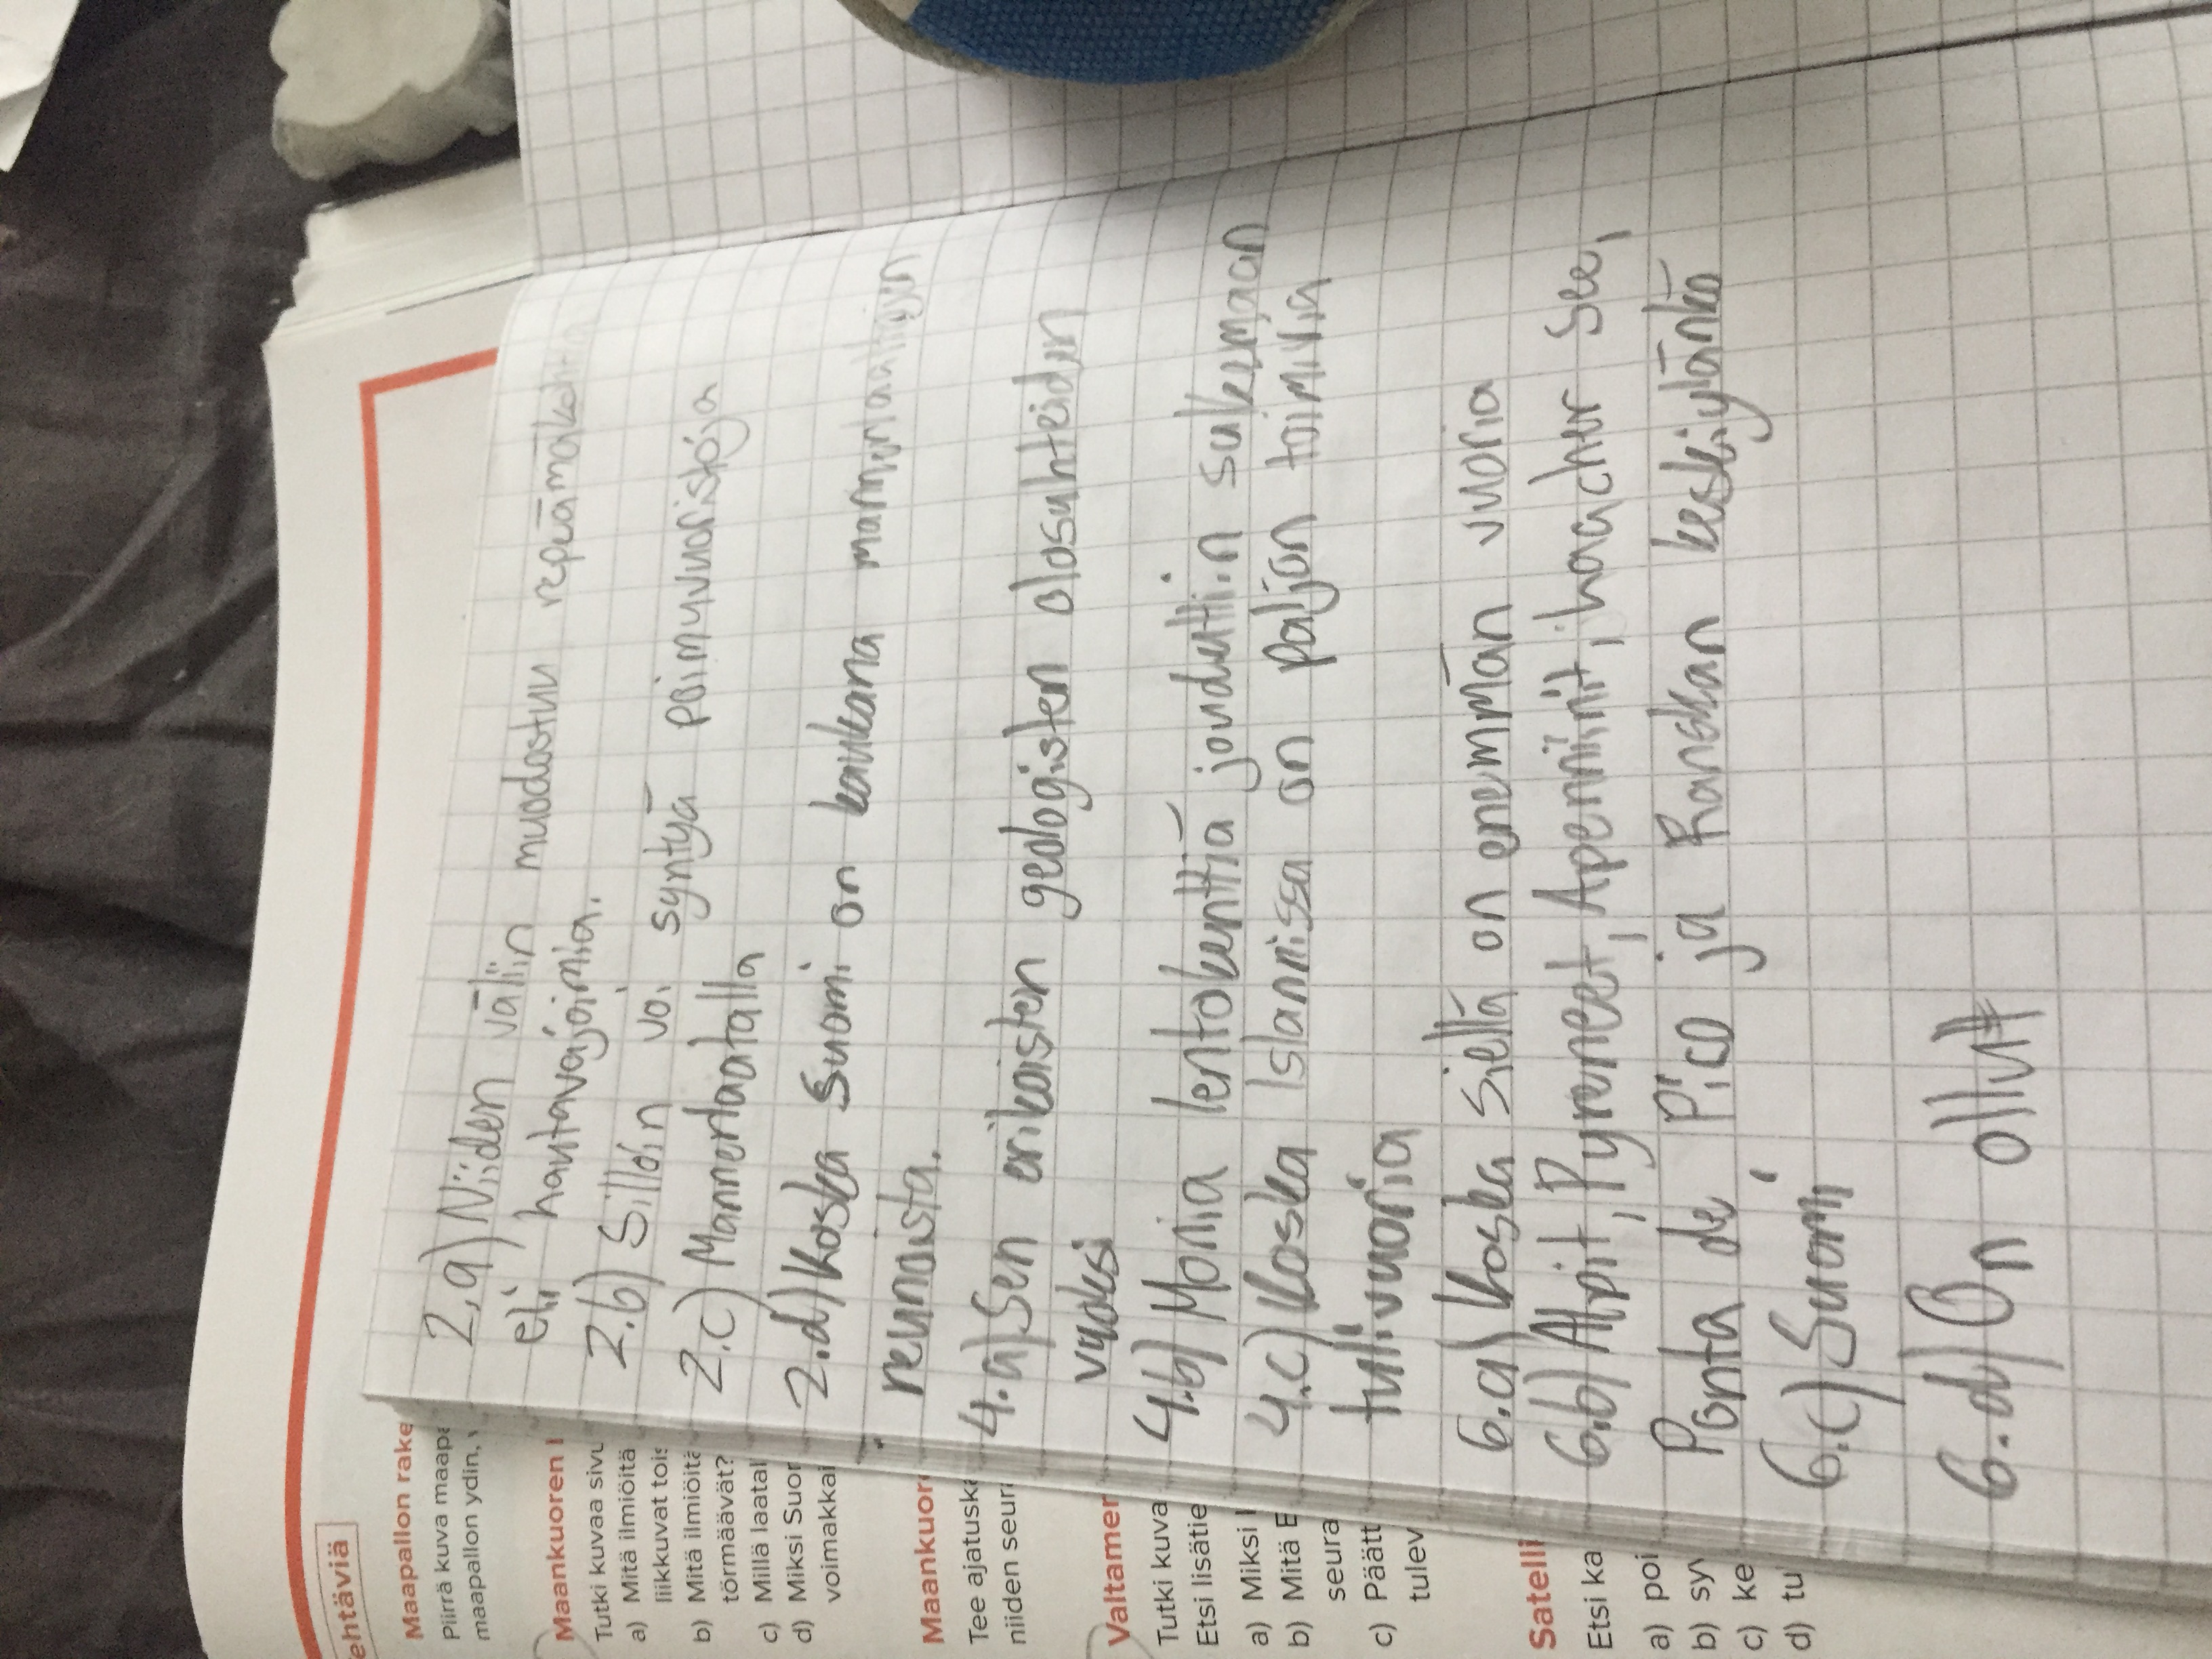 ehtäviä
Maapallon rake
Piirrä kuva maapa
maapallon ydin,
Maankuoren l
Tutki kuvaa sivu
a) Mitä ilmiöitä
liikkuvat tois
b) Mitä ilmiöitä
törmäävät?
c) Millä laatal
d) Miksi Suor
voimakkai
Maankuor
Tee ajatuska
niiden seur
Valtamer
Tutki kuva
Etsi lisätie
a) Miksi I
b) Mitä E
seura
c) Päätt
tulev
Satelli
Etsi ka
a) poi
b) syv
c) ke
d) tu
2.a) Niiden väliin muodostuu repeämäkohtia
eli hautavajoimia.
2.b) Silloin voi syntyä poimuvuoristoja
2.c) Mannerlaatalla
2.d) Koska Suomi on kaukana mannerlaattojen
reunoista.
4.a) Sen erikoisten geologisten olosuhteiden
vuoksi
4.b) Monia lentokenttiä jouduttiin sulkemaan
4.c) Koska Islannissa on paljon toimivia
tulivuoria
6.a) Koska siellä on enemmän vuoria
6.b) Alpit, Pyreneet, Apenniinit, haacher see,
Ponta de Pico ja Ranskan keskiylänkö
6.c) Suomi
6.d) On ollut